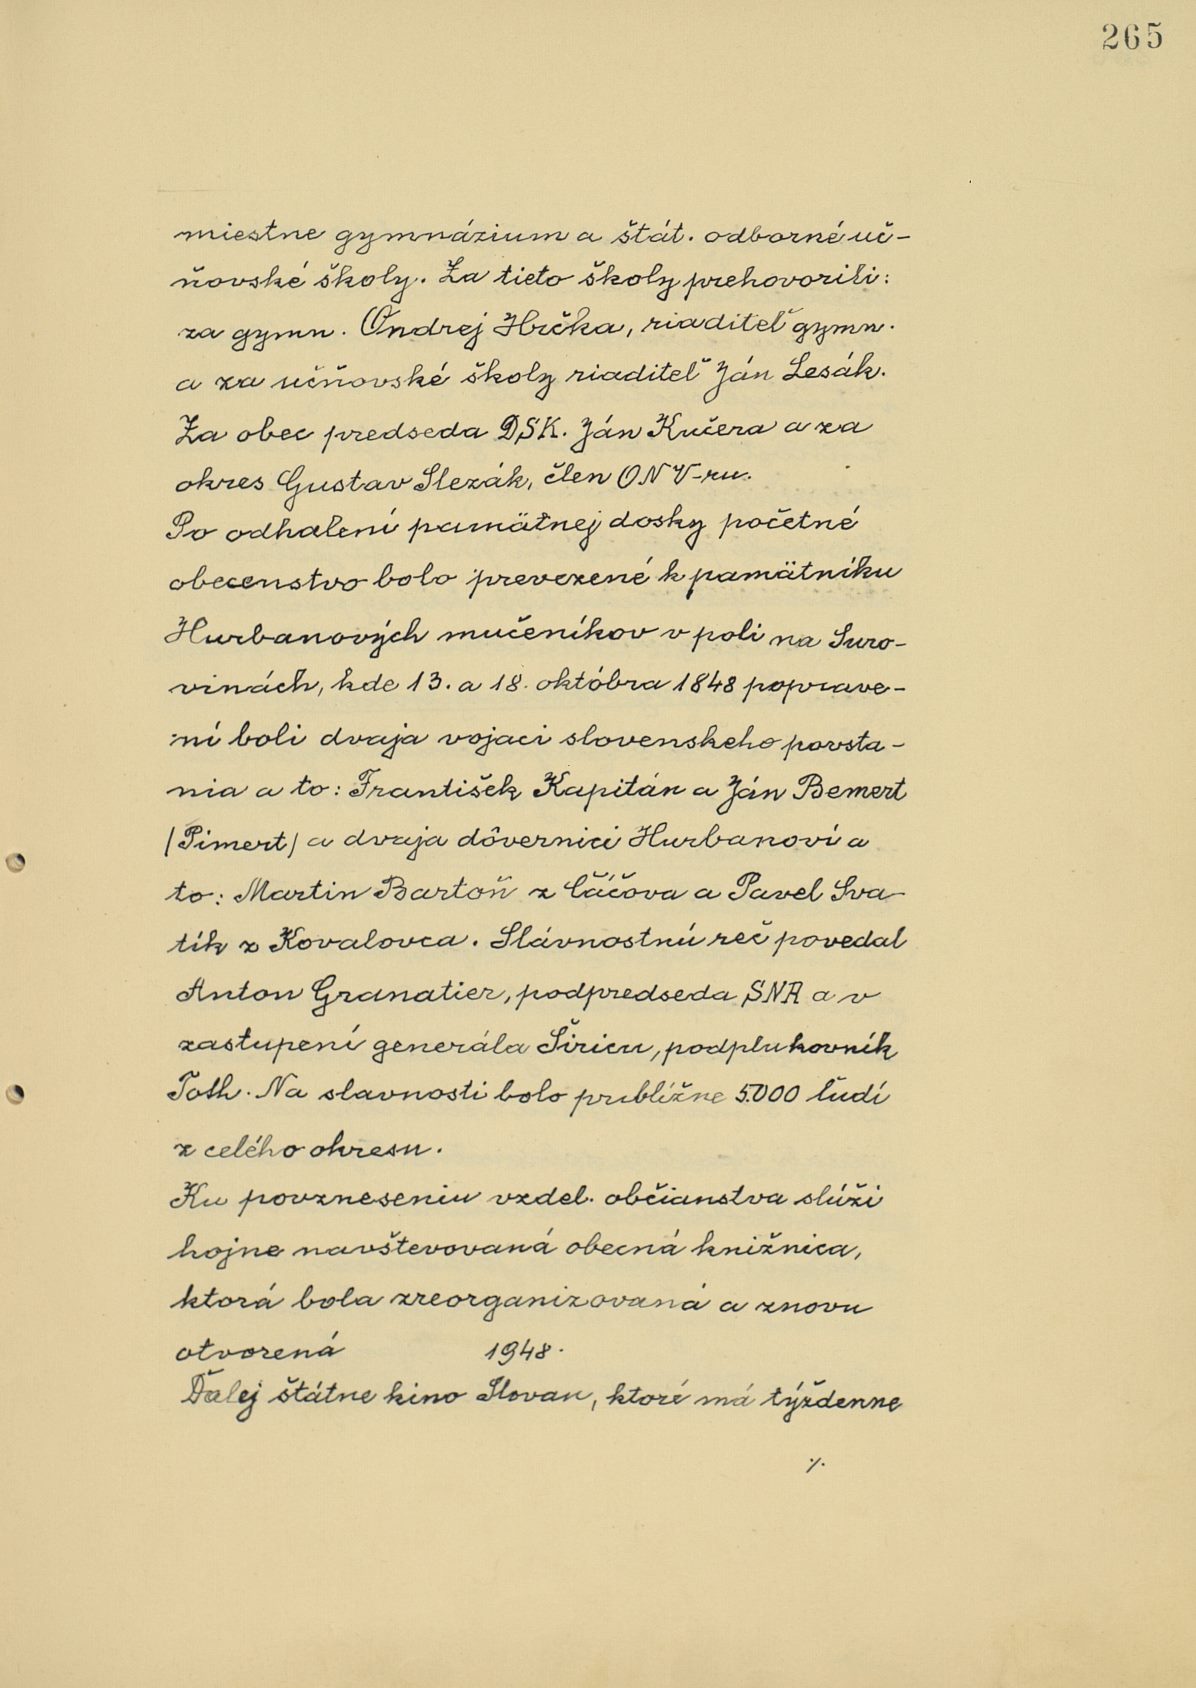 265
miestne gymnázium a štát. odborné uč-
ňovské školy. Za tieto školy prehovorili:
za gymn. Ondrej Hrčka, riaditeľ gymn.
a za učňovské školy riaditeľ Ján Lesák.
Za obec predseda DSK. Ján Kučera a za
okres Gustav Slezák, člen ONV-ru.
Po odhalení pamätnej dosky početné
obecenstvo bolo prevezené k pamätníku
Hurbanových mučeníkov v poli na Suro-
vinách, kde 13. a 18. októbra 1848 poprave-
ní boli dvaja vojaci slovenskeho povsta-
nia a to: František Kapitán a Ján Bemert
/Pimert/ a dvaja dôvernici Hurbanoví a
to: Martin Bartoň z Čáčova a Pavel Sva-
tík z Kovalovca. Slávnostnú reč povedal
Anton Granatier, podpredseda SNR a v
zastupení generála Širicu, podplukovník
Toth. Na slavnosti bolo približne 5.000 ľudí
z celého okresu.
Ku povzneseniu vzdel. občianstva slúži
hojne navštevovaná obecná knižnica,
ktorá bola zreorganizovaná a znovu
otvorená 1948.
Ďalej štátne kino Slovan, ktoré má týždenne
./.